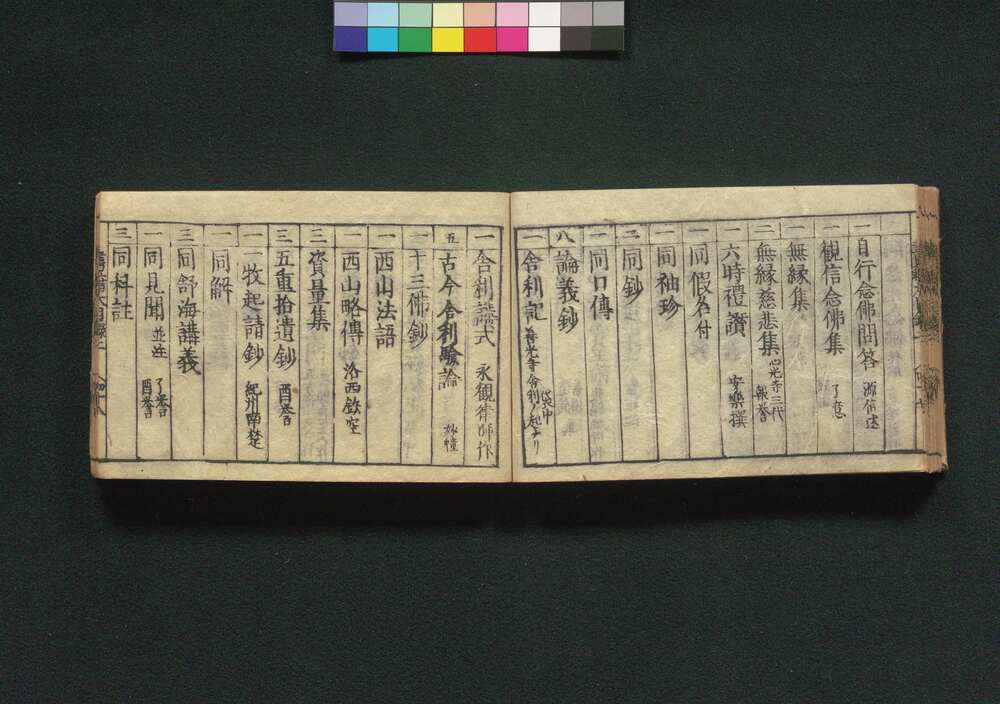 一 自行念佛問答 源信述
一 観信念佛集 了意
一 無縁集
二 無縁慈悲集 心光寺三代 報誉
一 六時禮讃 安樂撰
一 同假名付
一 同袖珍
三 同鈔
一 同口傳
八 論義鈔
一 舎利記 善光寺舎利ノ起より
一 舎利講式 永観律師作
五 古今舎利驗論 妙幢
二 十三佛鈔
一 西山法語
二 西山略傳 洛西欽空
三 資量集
三 五重拾遺鈔 酉誉
一 一枚起請鈔 紀州南楚
一 同解
三 同舒海講義
一 同見聞 並注 了誉 酉誉
三 同科註